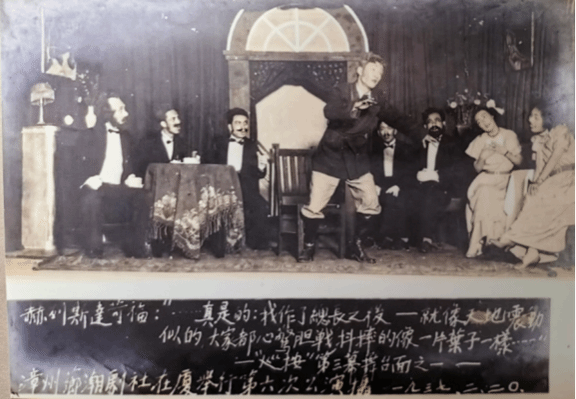 赫列斯達可福:"……真是的:我作了總長之後——就像大地震動
似的 大家都心驚胆戰抖的像一片葉子一樣……"
——"巡按"第三幕舞台面之一——
漳州薌潮劇社在廈舉行第六次公演攝 一九三七.二.二〇.